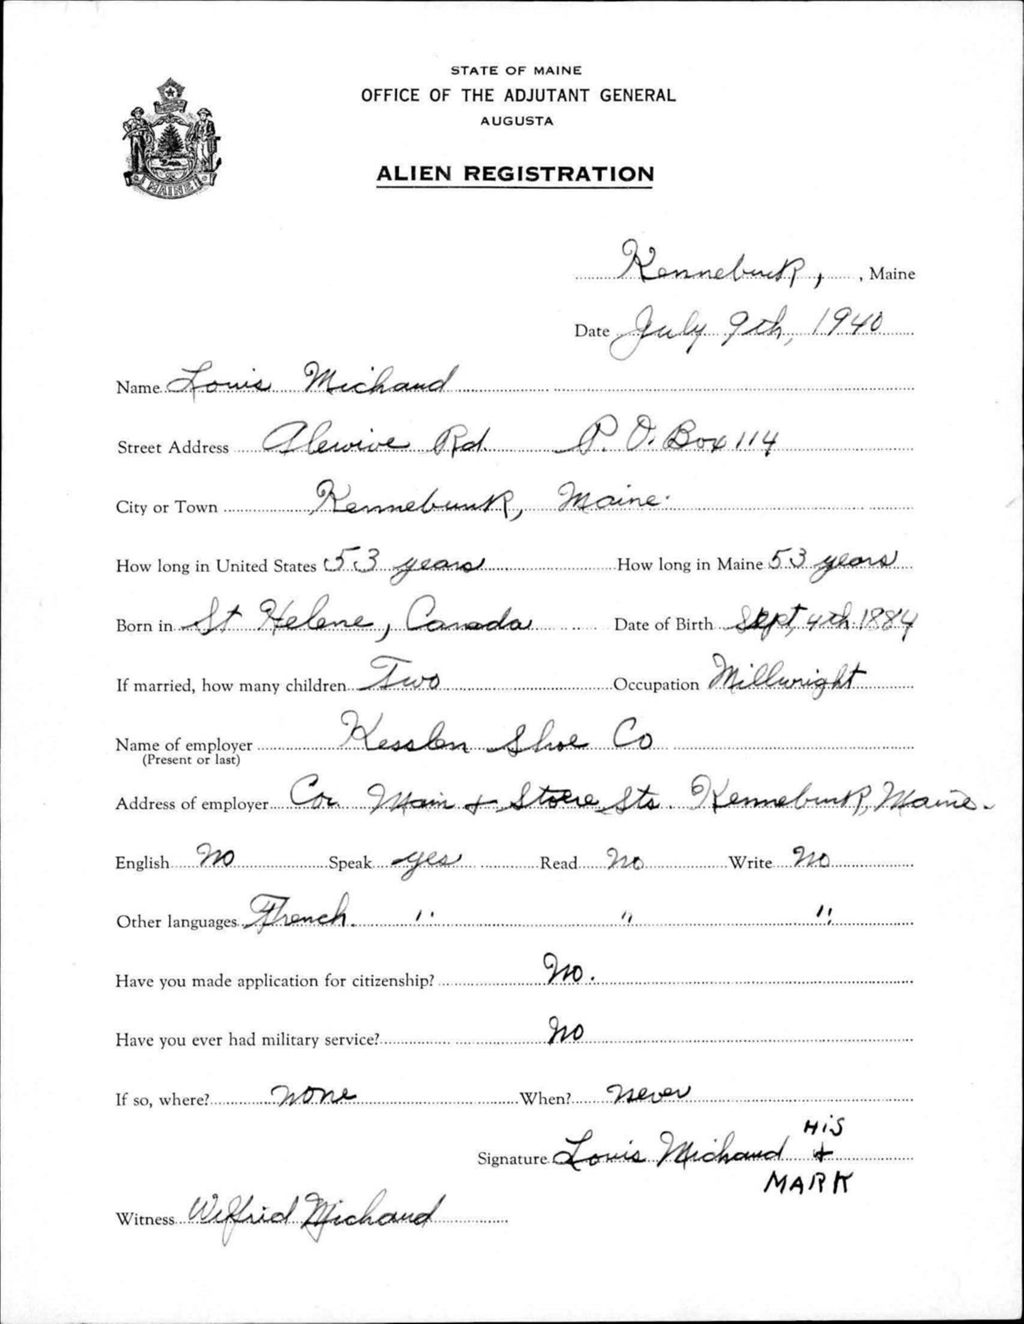 STATE OF MAINE
OFFICE OF THE ADJUTANT GENERAL
AUGUSTA
ALIEN REGISTRATION
MAINE
Kennebunk, , Maine
Date July 9th, 1940
Name Louis Michaud
Street Address Alewive Rd. P. O. Box 114
City or Town Kennebunk, Maine.
How long in United States 53 years How long in Maine 53 years
Born in St Helene, Canada Date of Birth Sept, 4th. 1884
If married, how many children Two Occupation Millwright
Name of employer Kesslen Shoe Co
(Present or last)
Address of employer Cor. Main & Storre Sts. Kennebunk, Maine.
English No Speak yes Read No Write No
Other languages French. " " "
Have you made application for citizenship? No.
Have you ever had military service? No
If so, where? None When? Never
HIS
Signature Louis Michaud +
MARK
Witness Wilfrid Michaud